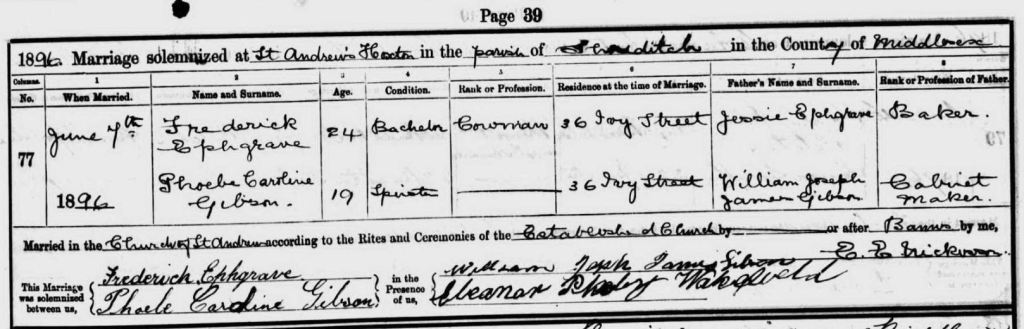 Page 39
1896. Marriage solemnized at St Andrew's Hoxton in the parish of Shoreditch in the County of Middlesex
Columns. 1 2 3 4 5 6 7 8
No. When Married. Name and Surname. Age. Condition. Rank or Profession. Residence at the time of Marriage. Father's Name and Surname. Rank or Profession of Father.
77 June 7th 1896 Frederick Ephgrave 24 Bachelor Cowman 36 Ivy Street Jessie Ephgrave Baker.
Phoebe Caroline Gibson. 19 Spinster 36 Ivy Street William Joseph James Gibson Cabinet Maker.
Married in the Church of St Andrew according to the Rites and Ceremonies of the Established Church by or after Banns by me,
This Marriage was solemnized between us, Frederick Ephgrave in the Presence of us, William Joseph James Gibson E. E.
Phoebe Caroline Gibson. Eleanor